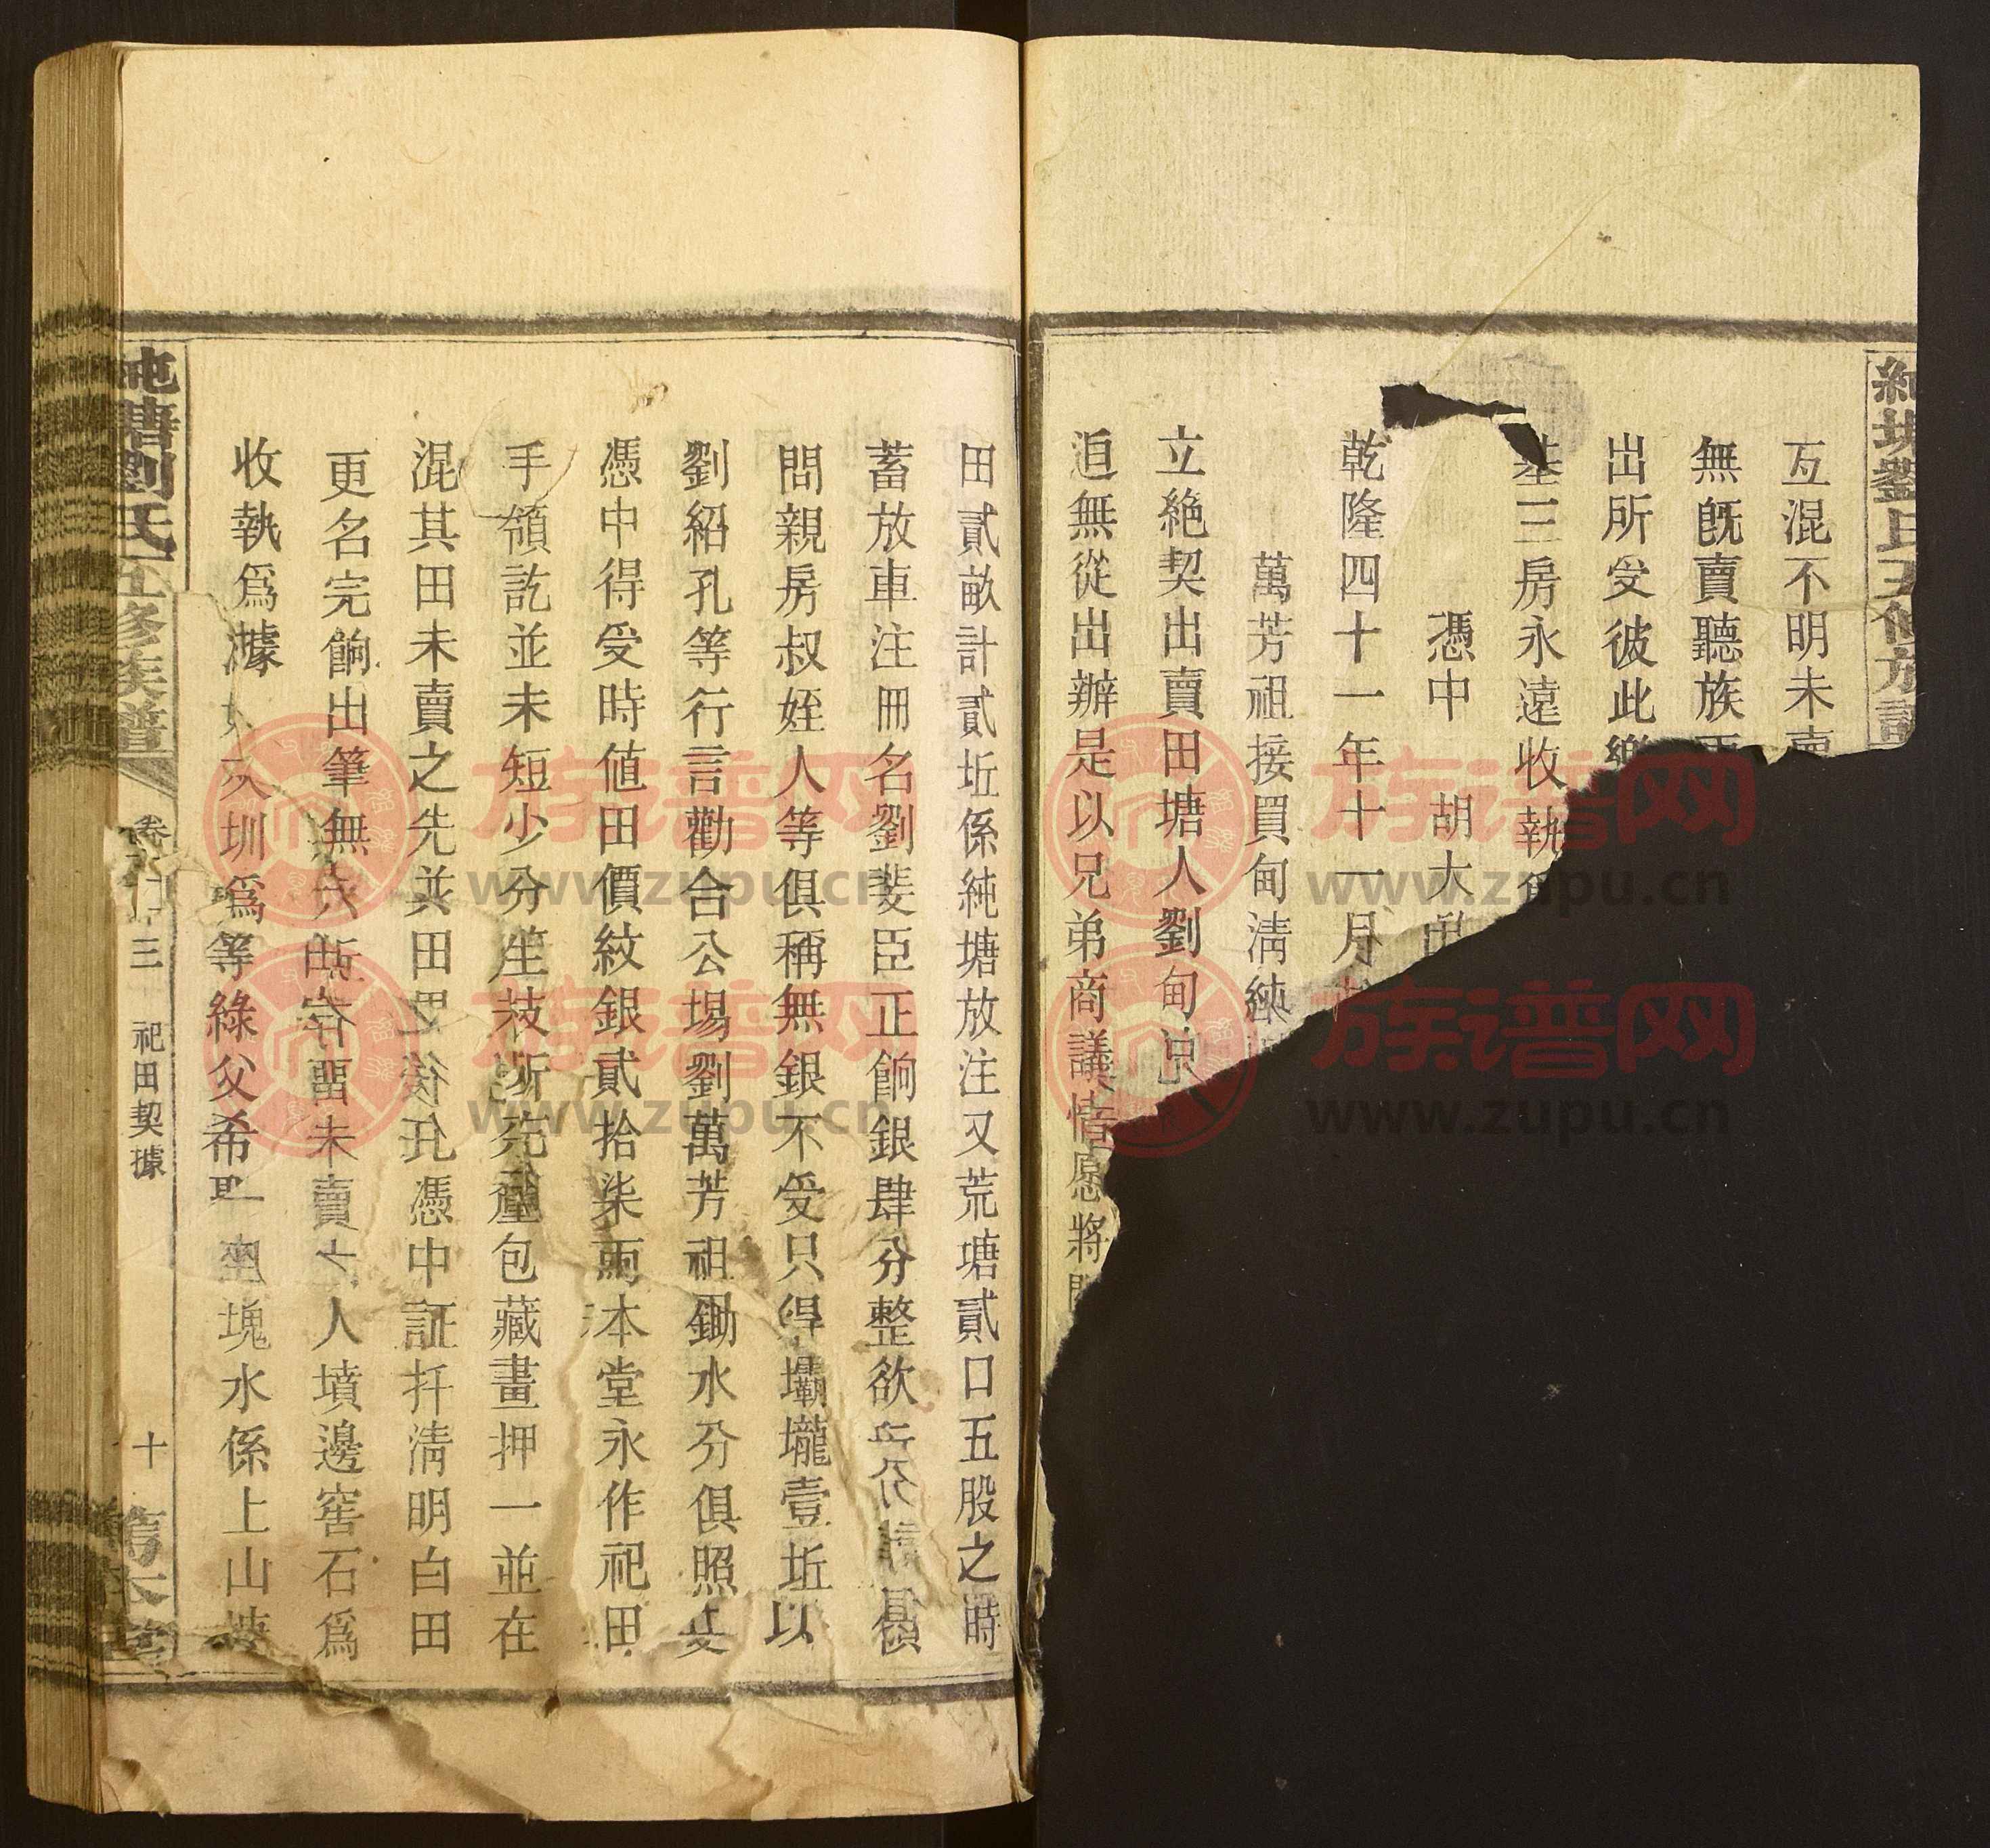 劉氏五修族譜
互混不明未賣
無既賣聽族
出所受彼此樂
基三房永遠收執
憑中 胡大
乾隆四十一年十一月
萬芳祖接買甸淸純
立絶契出賣田塘人劉甸
迫無從出辦是以兄弟商議情愿將
田貳畝計貳坵係純塘放注又荒塘貳口五股之時
蓄放車注冊名劉斐臣正餉銀肆分整欲
問親房叔姪人等俱稱無銀不受只得壩壠壹坵以
劉紹孔等行言勸合公場劉萬芳祖鋤水分俱照
憑中得受時值田價紋銀貳拾柒兩本堂永作祀田
手領訖並未短少分包藏畫押一並在
混其田未賣之先並田憑中証扦淸明白田
更名完餉出筆無留未賣人墳邊窖石爲
收執爲據
圳爲等綠父希塊水係上山
純塘劉氏五修族譜
卷 三 祀田契據
十
族谱网
www.zupu.cn
族谱网
www.zupu.cn
族谱网
www.zupu.cn
族谱网
www.zupu.cn